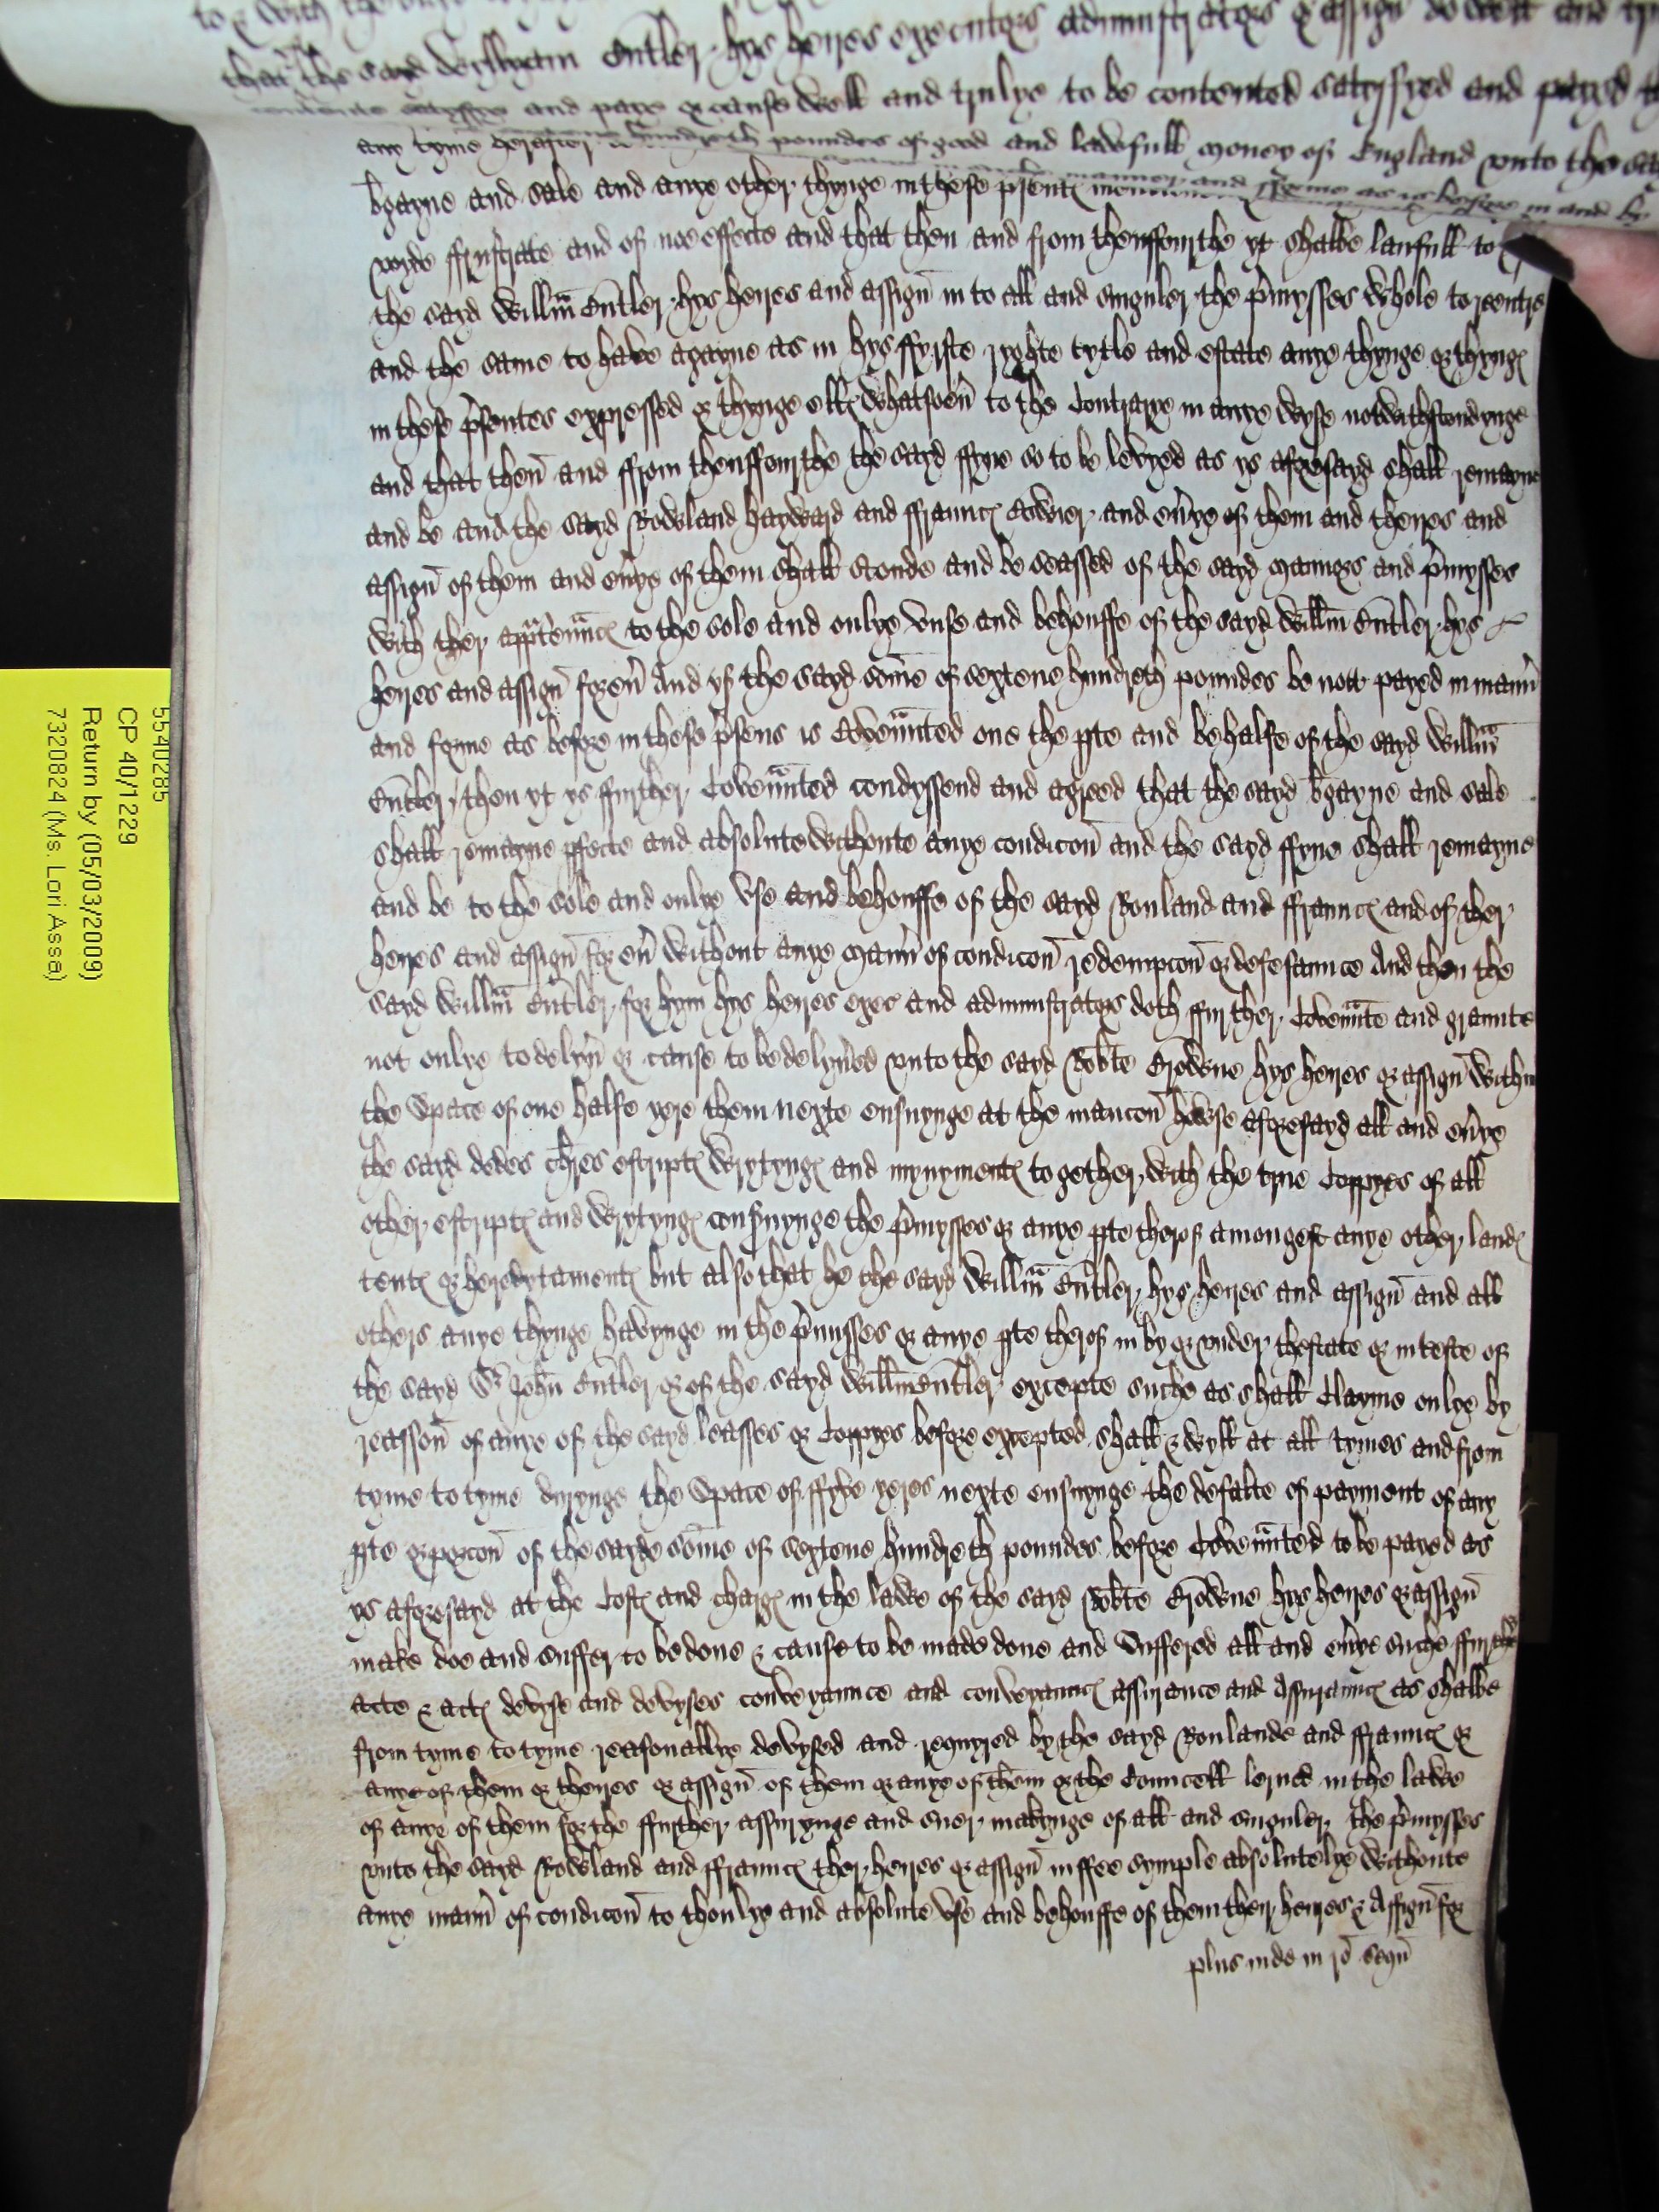 that the sayd Wyllyam Cutler hys heyres executors administrators & assign
and paye or cause well and trulye to be contented satysfyed and payed
any tyme herafter hundreth poundes of good and lawfull money of England vnto the
bgayne and sale and anye other thynge in these psent manner and forme as is before in and by
voyde ffrustrate and of noe effecte and that then and from thensfourthe yt shalbe laufull to
the sayd Willm Cutler hys heyres and assign in to all and singuler the pmysses whole to reentre
and the same to have agayne as in hys ffyrste ryghte tytle and estate anye thynge or thyng
in these psentes expressed or thynge ell whatsoeu to the Contrarye in anye wyse notwithstondynge
and that then and ffrom thensffourthe the sayd ffyne so to be levyed as ys aforesayd shall remayne
and be and the sayd Rowland hayward and ffraunc and euye of them and theyres and
assign of them and euye of them shall stonde and be seassed of the sayd mannors and pmysses
with ther apptennc to the sole and onlye vse and behouffe of the sayd Willm Cutler hys
heyres and assign foreu And yf the sayd some of sextene hundreth poundes be nott payed in mann
and forme as before in these psens is Covennted one the pte and behalfe of the sayd Willm
Cutler / then yt ys ffurther Covennted condyssend and agreed that the sayd bgayne and sale
shall remayne pfecte and absolute withoute anye condicon and the sayd ffyne shall remayne
and be to the sole and onlye vse and behouffe of the sayd Rouland and ffraunc and of ther
heyres and assign for eu without anye mann of condicon redempcon or defesaunce And then the
sayd Willm Cutler for hym hys heyres exec and administrators doth ffurther Covennte and graunte
not onlye to delyu or cause to be delyued vnto the sayd Robte Crowne hys heyres or assign within
the space of one halfe yere them nexte ensuynge at the mancon howse aforesayd all and euye
the sayd dedes chres escript wrytyng and mynyment together with the true Coppyes of all
other escript and wrytyng consnynge the pmysses or anye pte therof amongest anye other land
tent or heredytament but also that he the sayd Willm Cutler hys heyres and assign and all
others anye thynge havynge in the pmysses or anye pte therof in by or vnder thestate or inteste of
the sayd Sr John Cutler or of the sayd Willm Cutler excepte suche as shall Clayme onlye by
reasson of anye of the sayd leasses or Coppyes before excepted shall & wyll at all tymes and from
tyme to tyme durynge the space of ffyve yeres nexte ensuynge the defalte of payment of any
pte or porcon of the sayde some of sextene hundreth poundes before Covennted to be payed as
ys aforesayd at the Cost and charg in the lawe of the sayd Robte Crowne hys heyres or assign
make doe and suffer to be done & cause to be made done and suffered all and euye suche ffurther
acte & act devyse and devyses conveyaunce and conveyaunc assurance and Assuraunc as shalbe
from tyme to tyme reasonablye devysed and requyred by the sayd Roulande and ffraunc or
anye of them or theyres or assign of them or anye of them or the Councell lerned in the lawe
of anye of them for the ffurther assurynge and suer makynge of all and singuler the pmysses
vnto the sayd Rowland and ffraunc ther heyres or assign in ffee symple absolutelye withoute
anye mann of condicon to thonlye and absolute vse and behouffe of them ther heyres & Assign for
plus inde in ro sequ
5540285
CP 40/1229
Return by (05/03/2009)
7320824 (Ms. Lori Asse)